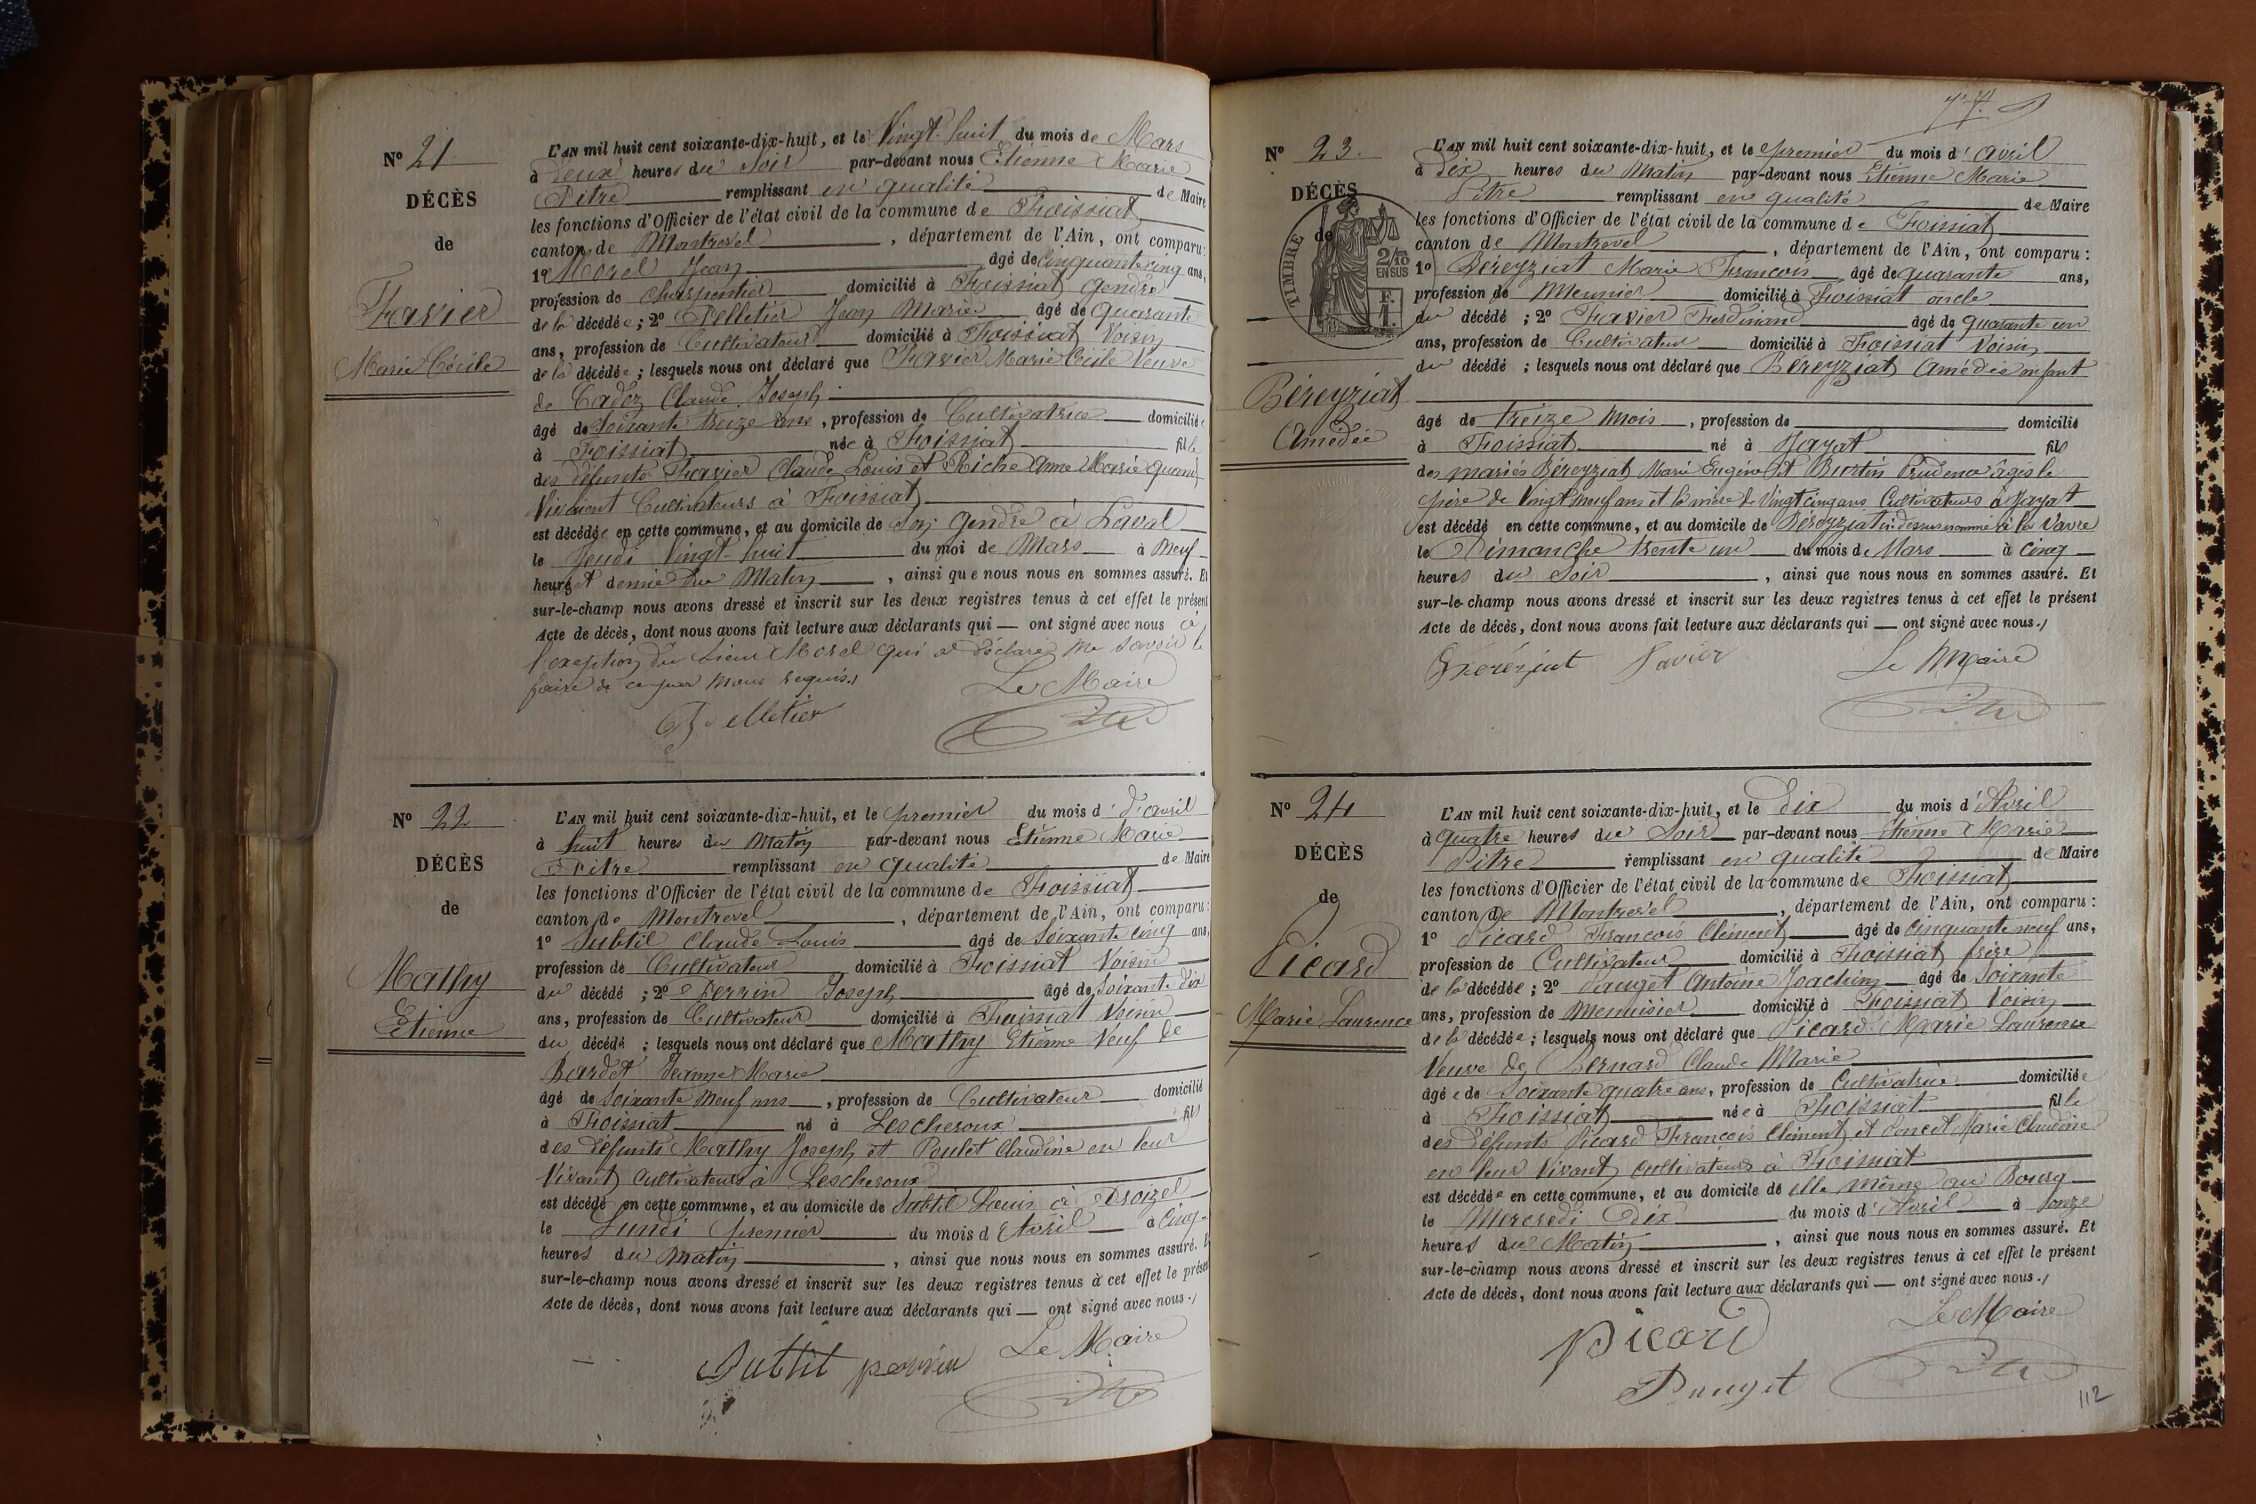 N° 21.
DÉCÈS
de
Favier
Marie Cécile
L'AN mil huit cent soixante-dix-huit, et le Vingt-huit du mois de Mars
à Deux heures du Soir par-devant nous Etienne Marie
Pitre remplissant en qualité de Maire
les fonctions d'Officier de l'état civil de la commune de Foissiat
canton de Montrevel, département de l'Ain, ont comparu :
1° Morel Jean âgé de Cinquante cinq ans,
profession de Charpentier domicilié à Foissiat gendre
de la décédée ; 2° Pelletier Jean Marie âgé de quarante
ans, profession de Cultivateur domicilié à Foissiat Voisin
de la décédée ; lesquels nous ont déclaré que Favier Marie Cécile Veuve
de Cadoz Claude Joseph
âgé de Soixante treize ans, profession de Cultivatrice domiciliée
à Foissiat née à Foissiat fille
des défunts Favier Claude Louis et Riche Anne Marie quand
Vivaient Cultivateurs à Foissiat
est décédée en cette commune, et au domicile de son gendre à Laval
le Jeudi Vingt-huit du moi de Mars à Neuf
heures et demie du Matin, ainsi que nous nous en sommes assuré. Et
sur-le-champ nous avons dressé et inscrit sur les deux registres tenus à cet effet le présent
Acte de décès, dont nous avons fait lecture aux déclarants qui — ont signé avec nous à
l'exeption du Sieur Morel qui a déclaré ne savoir le
faire de ce par nous requis.
Le Maire
Pelletier Pitre
N° 22
DÉCÈS
de
Mathy
Etienne
L'AN mil huit cent soixante-dix-huit, et le premier du mois d' d'avril
à huit heures du Matin par-devant nous Etienne Marie
Pitre remplissant en qualité de Maire
les fonctions d'Officier de l'état civil de la commune de Foissiat
canton de Montrevel, département de l'Ain, ont comparu :
1° Subtil Claude Louis âgé de Soixante cinq ans,
profession de Cultivateur domicilié à Foissiat Voisin
du décédé ; 2° Perrin Joseph âgé de Soixante dix
ans, profession de Cultivateur domicilié à Foissiat Voisin
du décédé ; lesquels nous ont déclaré que Mathy Etienne Veuf de
Bardet Jeanne Marie
âgé de Soixante Neuf ans, profession de Cultivateur domicilié
à Foissiat né à Lescheroux fils
des défunts Mathy Joseph et Poulet Claudine en leur
Vivant Cultivateurs à Lescheroux
est décédé en cette commune, et au domicile de Subtil Louis à Broizel
le Lundi premier du mois d Avril à Cinq
heures du Matin, ainsi que nous nous en sommes assuré. Et
sur-le-champ nous avons dressé et inscrit sur les deux registres tenus à cet effet le présent
Acte de décès, dont nous avons fait lecture aux déclarants qui — ont signé avec nous.
Le Maire
Subtil perrin Pitre
N° 23.
DÉCÈS
de
TIMBRE
2/10 EN SUS
F. 1.
Béreyziat
Amédée
L'AN mil huit cent soixante-dix-huit, et le premier du mois d' avril
à Dix heures du Matin par-devant nous Etienne Marie
Pitre remplissant en qualité de Maire
les fonctions d'Officier de l'état civil de la commune de Foissiat
canton de Montrevel, département de l'Ain, ont comparu :
1° Béreyziat Marie François âgé de quarante ans,
profession de Meunier domicilié à Foissiat oncle
du décédé ; 2° Favier Ferdinand âgé de quarante un
ans, profession de Cultivateur domicilié à Foissiat Voisin
du décédé ; lesquels nous ont déclaré que Béreyziat Amédée enfant
âgé de treize Mois, profession de domicilié
à Foissiat né à Jayat fils
des mariés Béreyziat Marie Eugène et Burtin Prudence âgés le
père de Vingt neuf ans et la mère de Vingt cinq ans Cultivateurs à Jayat
est décédé en cette commune, et au domicile de Béreyziat ci dessus nommé à la Vavre
le Dimanche trente un du mois de Mars à Cinq
heures du Soir, ainsi que nous nous en sommes assuré. Et
sur-le-champ nous avons dressé et inscrit sur les deux registres tenus à cet effet le présent
Acte de décès, dont nous avons fait lecture aux déclarants qui — ont signé avec nous.
Favier Le Maire
Pitre
N° 24
DÉCÈS
de
Picard
Marie Laurence
L'AN mil huit cent soixante-dix-huit, et le Dix du mois d' Avril
à quatre heures du Soir par-devant nous Etienne Marie
Pitre remplissant en qualité de Maire
les fonctions d'Officier de l'état civil de la commune de Foissiat
canton de Montrevel, département de l'Ain, ont comparu :
1° Picard François Clément âgé de Cinquante neuf ans,
profession de Cultivateur domicilié à Foissiat frère
de la décédée ; 2° Pauget Antoine Joachim âgé de Soixante
ans, profession de Menuisier domicilié à Foissiat Voisin
de la décédée ; lesquels nous ont déclaré que Picard Marie Laurence
Veuve de Bernard Claude Marie
âgée de Soixante quatre ans, profession de Cultivatrice domiciliée
à Foissiat née à Foissiat fille
des défunts Picard François Clément et Poncet Marie Claudine
en leur Vivant cultivateurs à Foissiat
est décédée en cette commune, et au domicile de elle même au Bourg
le Mercredi Dix du mois d' Avril à onze
heures du Matin, ainsi que nous nous en sommes assuré. Et
sur-le-champ nous avons dressé et inscrit sur les deux registres tenus à cet effet le présent
Acte de décès, dont nous avons fait lecture aux déclarants qui — ont signé avec nous.
Le Maire
Picard
Pauget Pitre
112